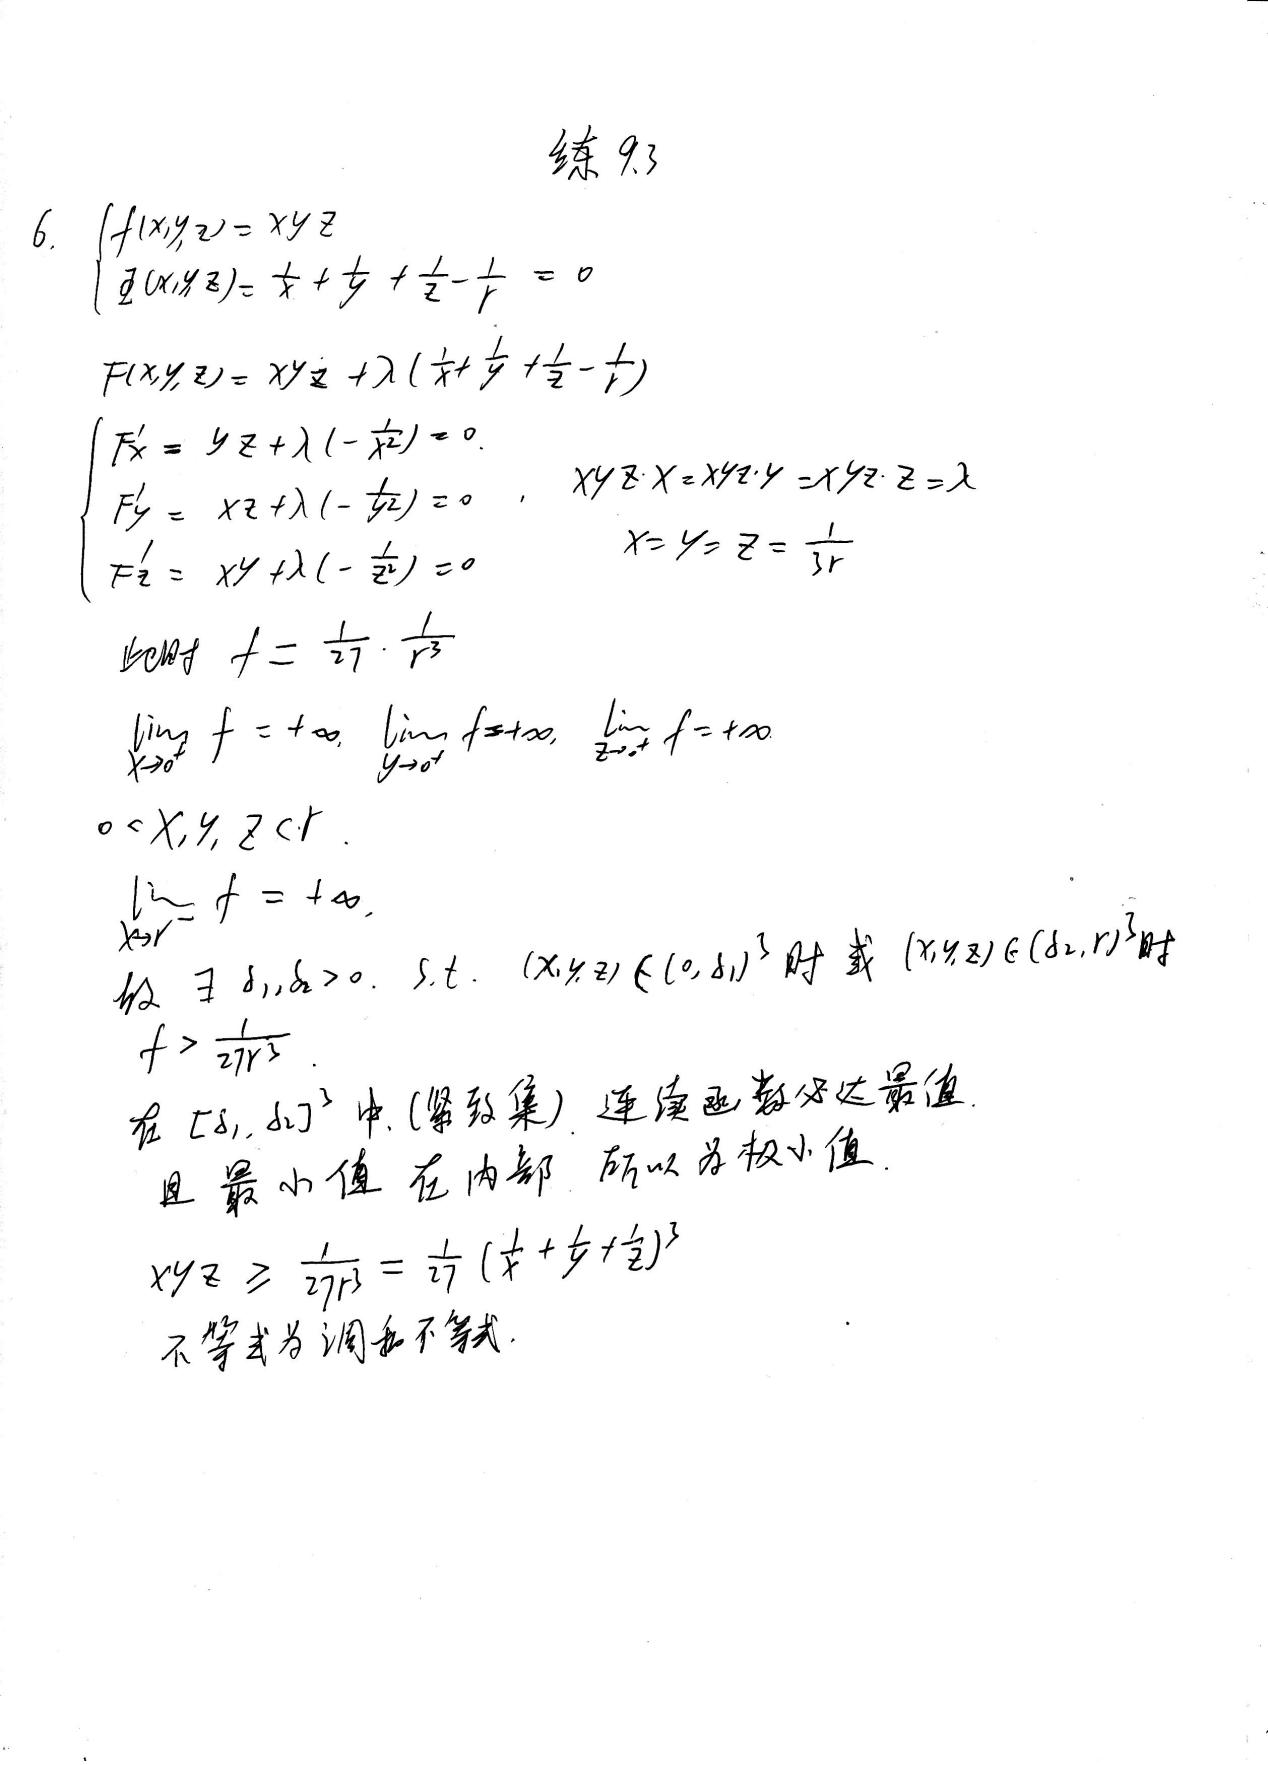 练 9.3
6. { f(x,y,z) = xyz
Φ(x,y,z) = 1/x + 1/y + 1/z - 1/r = 0
F(x,y,z) = xyz + λ(1/x + 1/y + 1/z - 1/r)
{ F'x = yz + λ(-1/x²) = 0.
F'y = xz + λ(-1/y²) = 0 , xyz·x = xyz·y = xyz·z = λ
F'z = xy + λ(-1/z²) = 0 x = y = z = 1/3r
此时 f = 1/27 · 1/r³
lim x→0⁺ f = +∞, lim y→0⁺ f = +∞, lim z→0⁺ f = +∞.
0 < x, y, z < r.
lim x→r⁻ f = +∞,
故 ∃ δ₁, δ₂ > 0. s.t. (x,y,z) ∈ (0, δ₁)³ 时 或 (x,y,z) ∈ (δ₂, r)³ 时
f > 1/27r³.
在 [δ₁, δ₂]³ 中, (紧致集). 连续函数必达最值.
且 最小值 在内部 所以为极小值.
xyz ≥ 1/27r³ = 1/27 (1/x + 1/y + 1/z)³
不等式为调和不等式.